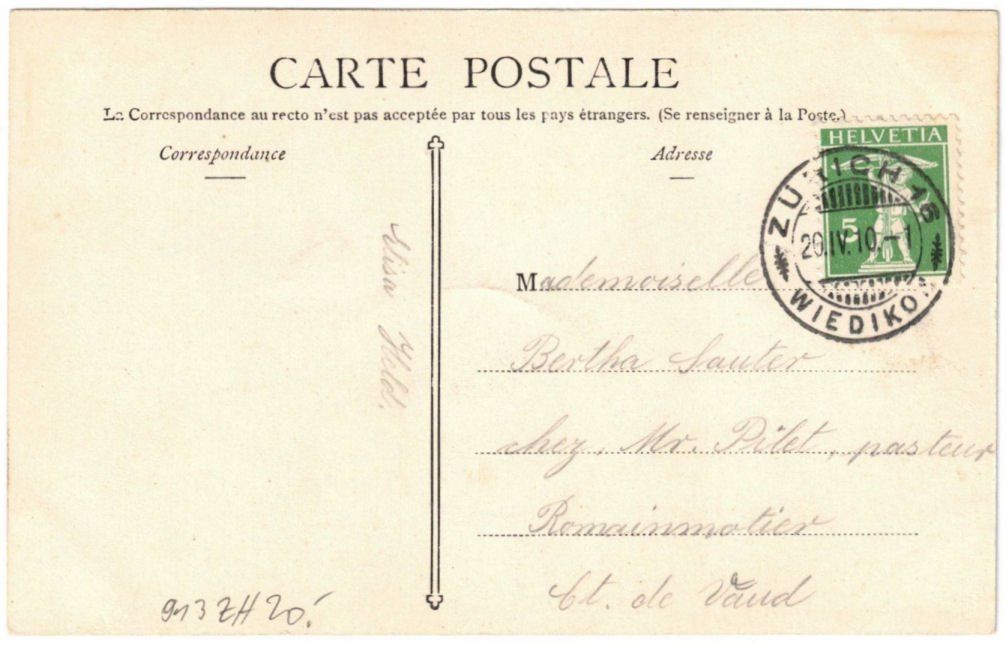 CARTE POSTALE
La Correspondance au recto n'est pas acceptée par tous les pays étrangers. (Se renseigner à la Poste.)
Correspondance
Adresse
HELVETIA
5
ZÜRICH 16
20.IV.10.-1
WIEDIKON
Elisa Held.
Mademoiselle
Bertha Sauter
chez. Mr. Pilet, pasteur
Romainmotier
Ct. de Vaud
913 ZH 20.-